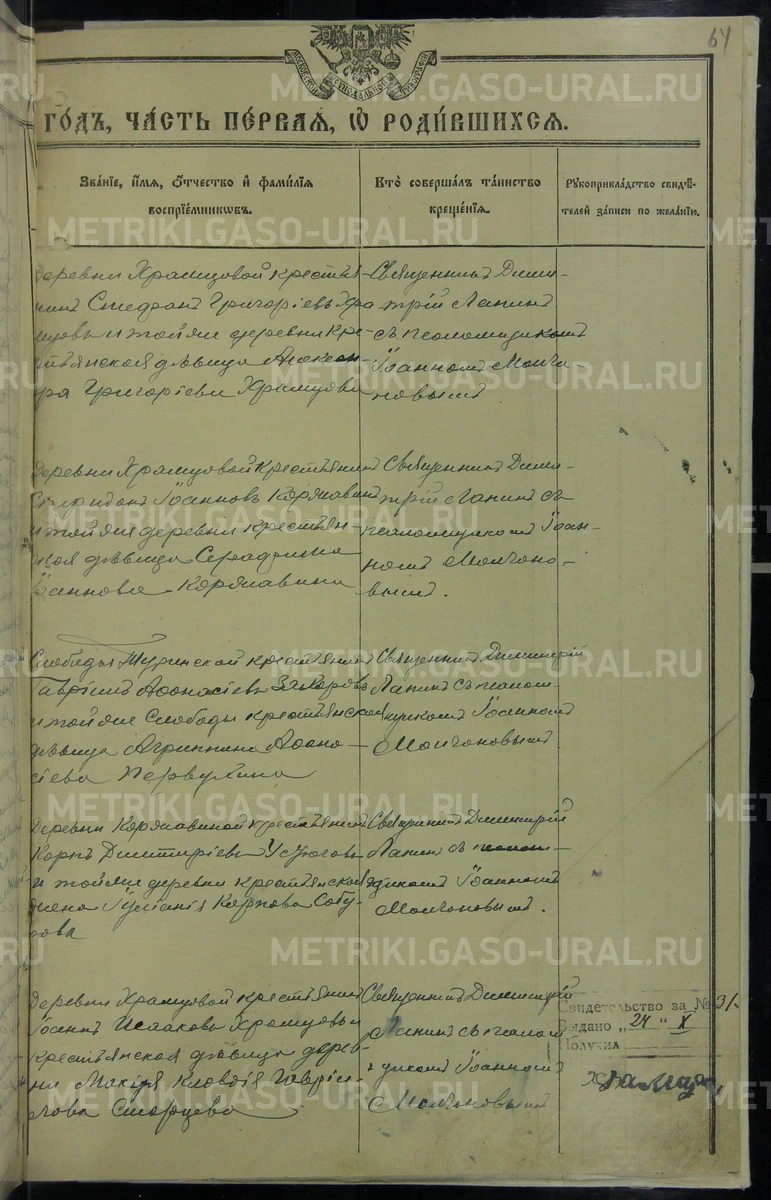 64
ГОДЪ, ЧАСТЬ ПЕРВАЯ, Ѡ РОДИВШИХСЯ.
Званіе, имя, отчество и фамилія
воспріемниковъ.
Кто совершалъ таинство
крещенія.
Рукоприкладство свидѣ-
телей записи по желанію.
деревни Храмцовой крестья-
нинъ Стефанъ Григоріевъ Хра
мцовъ и той же деревни кре-
стьянская дѣвица Алексан-
дра Григоріева Храмцова
Священникъ Дими-
трій Лапинъ
съ псаломщикомъ
Іоанномъ Молча-
новымъ
Деревни Храмцовой крестьянинъ
Спиридонъ Іоанновъ Корявинъ
и той же деревни крестьян-
ская дѣвица
Іоаннова Корявина
Священникъ Дими-
трій Лапинъ съ
псаломщикомъ Іоан-
номъ Молчано-
вымъ.
Слободы Туринской крестьянинъ
Гавріилъ Афонасіевъ Захаровъ
и той же слободы крестьянская
дѣвица Агриппина Афона-
сіева Первухина
Священникъ Димитрій
Лапинъ съ псалом-
щикомъ Іоанномъ
Молчановымъ
Деревни Корявиной крестьянинъ
Карпъ Димитріевъ Устюговъ
и той же деревни крестьянская
жена Іуліанія Карпова
Священникъ Димитрій
Лапинъ съ псалом-
щикомъ Іоанномъ
Молчановымъ.
Деревни Храмцовой крестьянинъ
Іоаннъ Исааковъ Храмцовъ и
крестьянская дѣвица дерев-
ни Клавдія Гавріи-
лова Старцева
Священникъ Димитрій
Лапинъ съ псалом
щикомъ Іоанномъ
Молчановымъ
Свидетельство за № 31
Выдано „24 “ X
Получил
METRIKI.GASO-URAL.RU